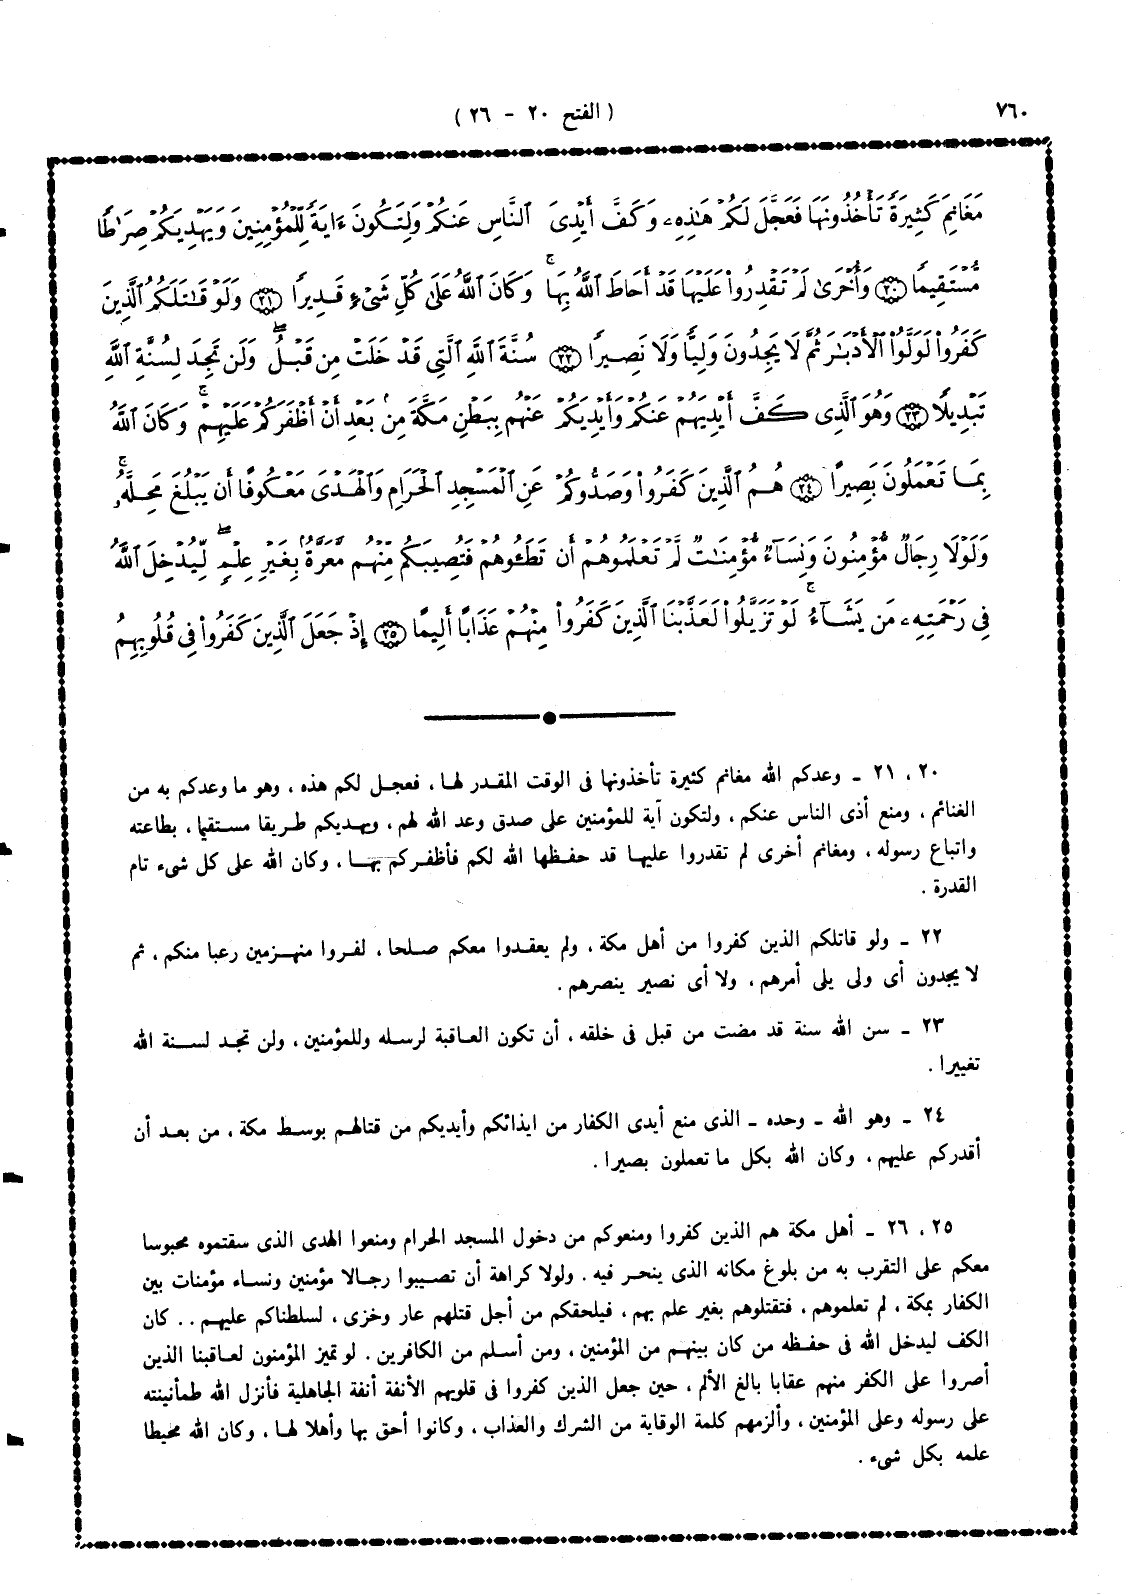 ٧٦٠
( الفتح ٢٠ - ٢٦ )
مَغَانِمَ كَثِيرَةً تَأْخُذُونَهَا فَعَجَّلَ لَكُمْ هَٰذِهِۦ وَكَفَّ أَيْدِىَ ٱلنَّاسِ عَنكُمْ وَلِتَكُونَ ءَايَةً لِّلْمُؤْمِنِينَ وَيَهْدِيَكُمْ صِرَٰطًا
مُّسْتَقِيمًا ٢٠ وَأُخْرَىٰ لَمْ تَقْدِرُوا۟ عَلَيْهَا قَدْ أَحَاطَ ٱللَّهُ بِهَا ۚ وَكَانَ ٱللَّهُ عَلَىٰ كُلِّ شَىْءٍ قَدِيرًا ٢١ وَلَوْ قَٰتَلَكُمُ ٱلَّذِينَ
كَفَرُوا۟ لَوَلَّوُا۟ ٱلْأَدْبَٰرَ ثُمَّ لَا يَجِدُونَ وَلِيًّا وَلَا نَصِيرًا ٢٢ سُنَّةَ ٱللَّهِ ٱلَّتِى قَدْ خَلَتْ مِن قَبْلُ ۖ وَلَن تَجِدَ لِسُنَّةِ ٱللَّهِ
تَبْدِيلًا ٢٣ وَهُوَ ٱلَّذِى كَفَّ أَيْدِيَهُمْ عَنكُمْ وَأَيْدِيَكُمْ عَنْهُم بِبَطْنِ مَكَّةَ مِنۢ بَعْدِ أَنْ أَظْفَرَكُمْ عَلَيْهِمْ ۚ وَكَانَ ٱللَّهُ
بِمَا تَعْمَلُونَ بَصِيرًا ٢٤ هُمُ ٱلَّذِينَ كَفَرُوا۟ وَصَدُّوكُمْ عَنِ ٱلْمَسْجِدِ ٱلْحَرَامِ وَٱلْهَدْىَ مَعْكُوفًا أَن يَبْلُغَ مَحِلَّهُۥ ۚ
وَلَوْلَا رِجَالٌ مُّؤْمِنُونَ وَنِسَآءٌ مُّؤْمِنَٰتٌ لَّمْ تَعْلَمُوهُمْ أَن تَطَـُٔوهُمْ فَتُصِيبَكُم مِّنْهُم مَّعَرَّةٌۢ بِغَيْرِ عِلْمٍ ۖ لِّيُدْخِلَ ٱللَّهُ
فِى رَحْمَتِهِۦ مَن يَشَآءُ ۚ لَوْ تَزَيَّلُوا۟ لَعَذَّبْنَا ٱلَّذِينَ كَفَرُوا۟ مِنْهُمْ عَذَابًا أَلِيمًا ٢٥ إِذْ جَعَلَ ٱلَّذِينَ كَفَرُوا۟ فِى قُلُوبِهِمُ
٢٠ ، ٢١ ـ وعدكم الله مغانم كثيرة تأخذونها فى الوقت المقدر لها ، فعجل لكم هذه ، وهو ما وعدكم به من
الغنائم ، ومنع أذى الناس عنكم ، ولتكون آية للمؤمنين على صدق وعد الله لهم ، ويهديكم طريقا مستقيما ، بطاعته
واتباع رسوله ، ومغانم أخرى لم تقدروا عليها قد حفظها الله لكم فأظفركم بها ، وكان الله على كل شىء تام
القدرة .
٢٢ ـ ولو قاتلكم الذين كفروا من أهل مكة ، ولم يعقدوا معكم صلحا ، لفروا منهزمين رعبا منكم ، ثم
لا يجدون أى ولى يلى أمرهم ، ولا أى نصير ينصرهم .
٢٣ ـ سن الله سنة قد مضت من قبل فى خلقه ، أن تكون العاقبة لرسله وللمؤمنين ، ولن تجد لسنة الله
تغييرا .
٢٤ ـ وهو الله ـ وحده ـ الذى منع أيدى الكفار من ايذائكم وأيديكم من قتالهم بوسط مكة ، من بعد أن
أقدركم عليهم ، وكان الله بكل ما تعملون بصيرا .
٢٥ ، ٢٦ ـ أهل مكة هم الذين كفروا ومنعوكم من دخول المسجد الحرام ومنعوا الهدى الذى سقتموه محبوسا
معكم على التقرب به من بلوغ مكانه الذى ينحر فيه . ولولا كراهة أن تصيبوا رجالا مؤمنين ونساء مؤمنات بين
الكفار بمكة ، لم تعلموهم ، فتقتلوهم بغير علم بهم ، فيلحقكم من أجل قتلهم عار وخزى ، لسلطناكم عليهم . . كان
الكف ليدخل الله فى حفظه من كان بينهم من المؤمنين ، ومن أسلم من الكافرين . لو تميز المؤمنون لعاقبنا الذين
أصروا على الكفر منهم عقابا بالغ الألم ، حين جعل الذين كفروا فى قلوبهم الأنفة أنفة الجاهلية فأنزل الله طمأنينته
على رسوله وعلى المؤمنين ، وألزمهم كلمة الوقاية من الشرك والعذاب ، وكانوا أحق بها وأهلا لها ، وكان الله محيطا
علمه بكل شىء .